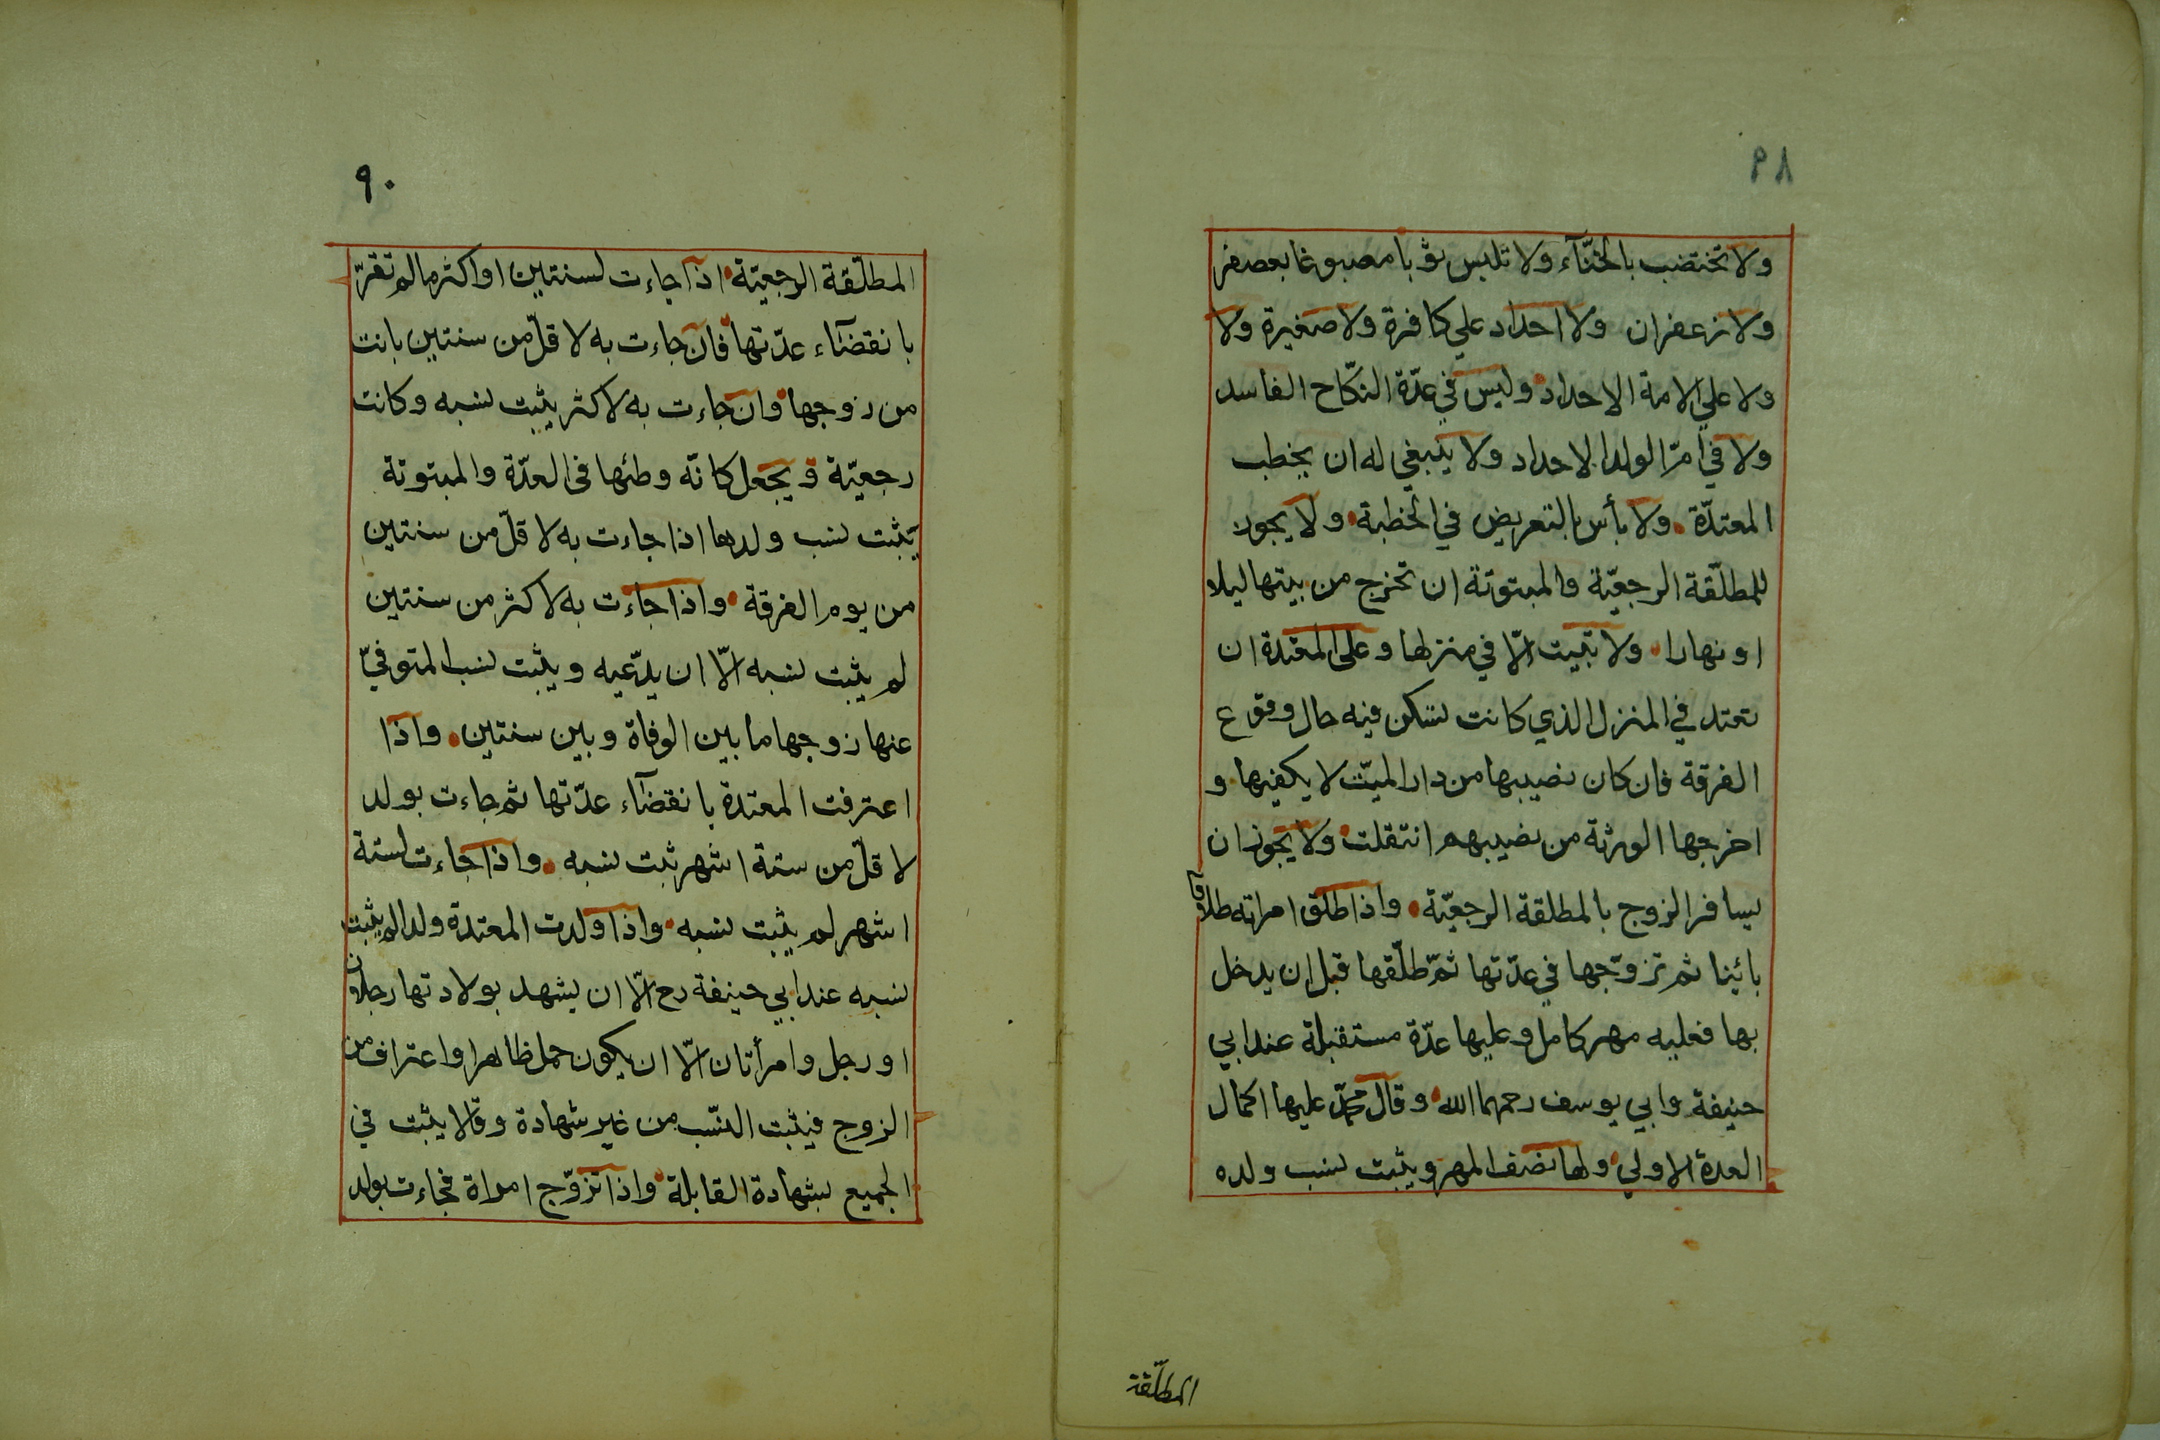 ٩٨
ولا تختضب بالحنّآء ولا تلبس ثوبا مصبوغا بعصفر
ولا زعفران ولا احداد علي كافرة ولا صغيرة ولا
ولا علي الامة الاحداد وليس في عدّة النكّاح الفاسد
ولا في امّ الولد الاحداد ولا ينبغي له ان يخطب
المعتدّة ولا بأس بالتعريض في الخطبة ولا يجوز
للمطلّقة الرجعيّة والمبتوتة ان تخرج من بيتها ليلا
او نهارا ولا تبيت الّا في منزلها وعلي المعتدة ان
تعتد في المنزل الذي كانت تسكن فيه حال وقوع
الفرقة فان كان نصيبها من دار الميّت لا يكفيها و
اخرجها الورثة من نصيبهم انتقلت ولا يجوز ان
يسافر الزوج بالمطلقة الرجعيّة واذا طلق امراته طلاقا
بائينا ثم تزوّجها في عدّتها ثمّ طلّقها قبل ان يدخل
بها فعليه مهر كامل وعليها عدّة مستقبلة عند ابي
حنيفة وابي يوسف رحمهما الله وقال محمّد عليها اكمال
العدة الاولي ولها نصف المهر ويثبت نسب ولده
المطلّقة
٩٠
المطلّقة الرجعيّة اذا جاءت لسنتين او اكثر مالم تقرّ
بانقضآء عدّتها فان جاءت به لا قلّ من سنتين بانت
من زوجها وان جاءت به لاكثر يثبت نسبه وكانت
رجعيّة ويجعل كانّه وطئها في العدّة والمبتوتة
يثبت نسب ولدها اذا جاءت به لا قلّ من سنتين
من يوم الفرقة واذا جاءت به لاكثر من سنتين
لم يثبت نسبه الّا ان يدّعيه ويثبت نسب المتوفيّ
عنها زوجها ما بين الوفاة وبين سنتين واذا
اعترفت المعتدة بانقضآء عدّتها ثم جاءت بولد
لا قلّ من ستة اشهر ثبت نسبه واذا جاءت لستة
اشهر لم يثبت نسبه واذا ولدت المعتدة ولدا لم يثبت
نسبه عند ابي حنيفة رح الّا ان يشهد بولادتها رجلان
او رجل وامرأتان الّا ان يكون حمل ظاهر او اعتراف من
الزوج فيثبت النسّب من غير شهادة وقالا يثبت في
الجميع بشهادة القابلة واذا تزوّج امراة فجاءت بولد